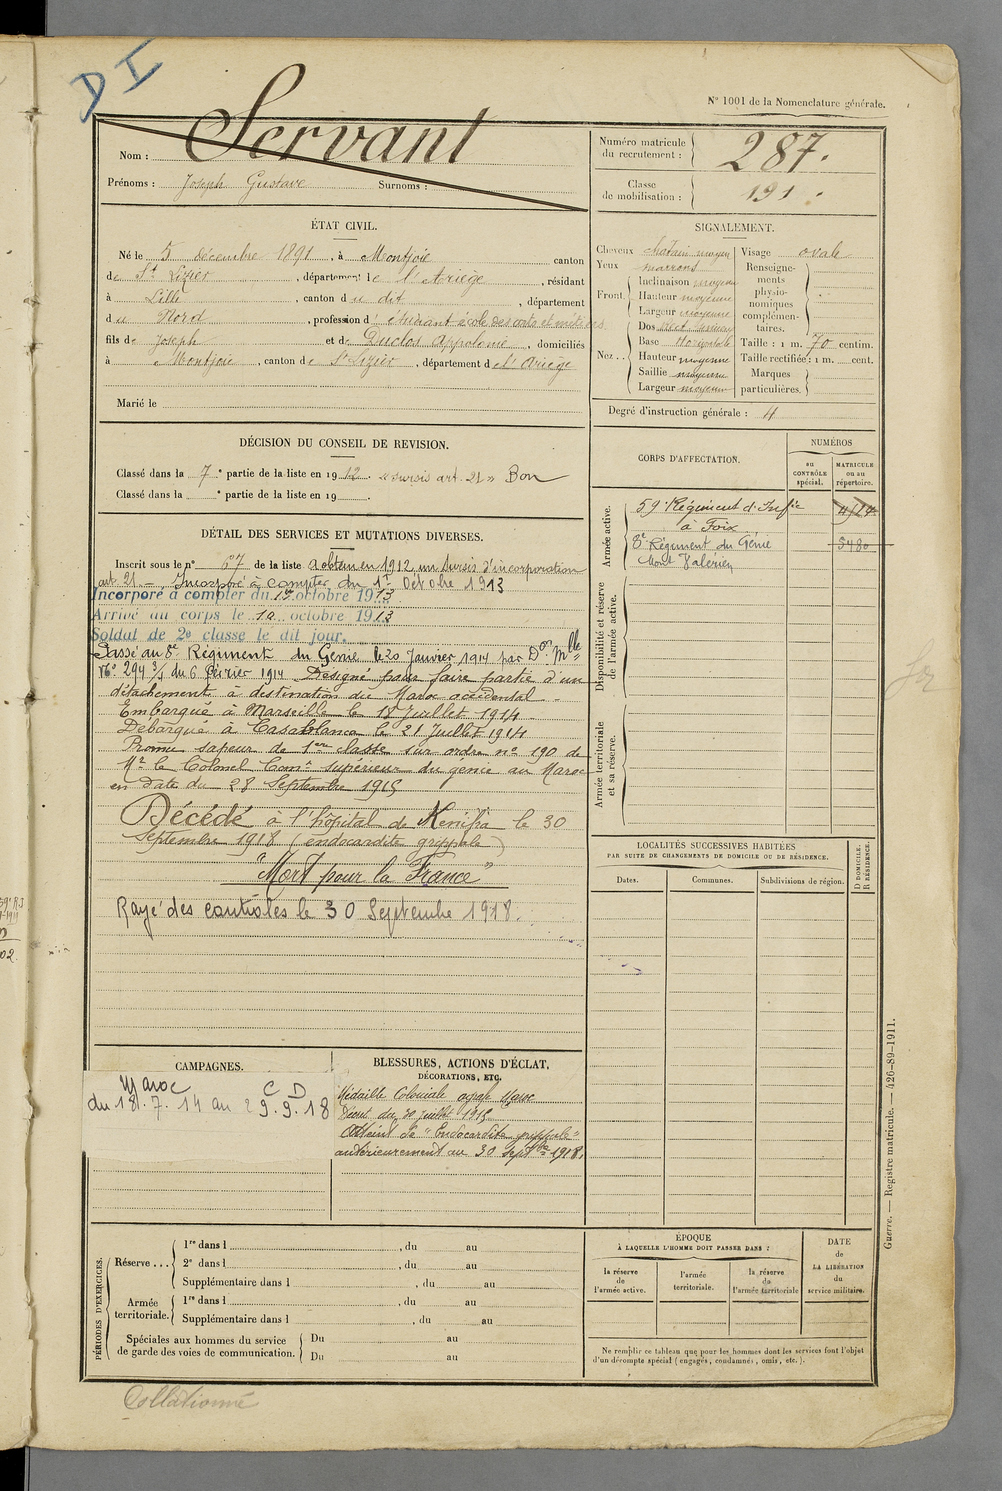 DI
N° 1001 de la Nomenclature générale.
Nom : Servant
Prénoms : Joseph Gustave Surnoms :
Numéro matricule du recrutement : 287.
Classe de mobilisation : 191 .
ÉTAT CIVIL.
Né le 5 décembre 1891, à Montjoie canton
de St Lizier, département de l'Ariège, résidant
à Lille, canton du dit, département
du Nord, profession d' étudiant école des arts et métiers
fils de Joseph et de Duclos Appolonie, domiciliés
à Montjoie, canton de St Lizier, département de l'Ariège
Marié le
SIGNALEMENT.
Cheveux chatain moyen
Yeux marrons
Front. Inclinaison moyenne
Hauteur moyenne
Largeur moyenne
Nez.. Dos
Base Horizontale
Hauteur moyenne
Saillie moyenne
Largeur moyenne
Visage ovale
Renseignements physionomiques complémentaires.
Taille : 1 m. 70 centim.
Taille rectifiée : 1 m. cent.
Marques particulières.
Degré d'instruction générale : 4
DÉCISION DU CONSEIL DE REVISION.
Classé dans la 7e partie de la liste en 1912. "sursis art. 21" Bon
Classé dans la e partie de la liste en 19 .
CORPS D'AFFECTATION.
NUMÉROS
au CONTRÔLE spécial.
MATRICULE ou au répertoire.
Armée active.
59e Régiment d'Infie
à Foix
8e Régiment du Génie 5480
Mont Valérien
Disponibilité et réserve de l'armée active.
Armée territoriale et sa réserve.
DÉTAIL DES SERVICES ET MUTATIONS DIVERSES.
Inscrit sous le n° 67 de la liste A obtenu en 1912, un sursis d'incorporation
art. 21 -. Incorporé à compter du 1er Octobre 1913
Incorporé à compter du 1er octobre 1913
Arrivé au corps le 10 octobre 1913
Soldat de 2e classe le dit jour.
Passé au 8e Régiment du Génie le 20 Janvier 1914 par Don Mlle
No 294 3/4 du 6 Février 1914 Désigné pour faire partie d'un
détachement à destination du Maroc occidental
Embarqué à Marseille le 18 Juillet 1914
Débarqué à Casablanca le 21 Juillet 1914
Promu sapeur de 1ère classe sur ordre n° 190 de
Mr le Colonel Comt supérieur du génie au Maroc
en date du 28 Septembre 1915
Décédé à l'hôpital de Kenifra le 30
Septembre 1918 (endocardite grippale)
"Mort pour la France"
Rayé des contrôles le 30 Septembre 1918.
LOCALITÉS SUCCESSIVES HABITÉES
PAR SUITE DE CHANGEMENTS DE DOMICILE OU DE RÉSIDENCE.
Dates. Communes. Subdivisions de région. D DOMICILE. R RÉSIDENCE.
CAMPAGNES.
Maroc C D
du 18.7.14 au 29.9.18
BLESSURES, ACTIONS D'ÉCLAT,
DÉCORATIONS, ETC.
Médaille Coloniale agrafe Maroc
Décret du 30 juillet 1915
Atteint de "Endocardite grippale"
antérieurement au 30 Septbre 1918.
PÉRIODES D'EXERCICES.
Réserve ... 1re dans l , du au
2e dans l , du au
Supplémentaire dans l , du au
Armée territoriale. 1re dans l , du au
Supplémentaire dans l , du au
Spéciales aux hommes du service de garde des voies de communication. Du au
Du au
ÉPOQUE
À LAQUELLE L'HOMME DOIT PASSER DANS :
la réserve de l'armée active.
l'armée territoriale.
la réserve de l'armée territoriale
DATE de LA LIBÉRATION du service militaire.
Ne remplir ce tableau que pour les hommes dont les services font l'objet
d'un décompte spécial (engagés, condamnés, omis, etc.).
Guerre. — Registre matricule. — 426-89-1911.
Collationné